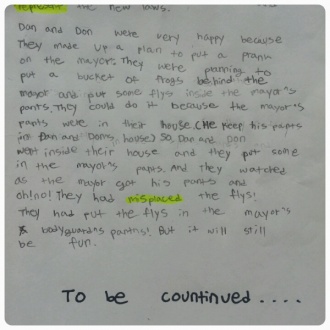 the new laws.
Don and Don were very happy because
They made up a plan to put a prank
on the mayor. They were planning to
put a bucket of frogs behind the
mayor and put some flys inside the mayor's
pants. They could do it because the mayor's
pants were in their house. (He keep his pants
in Don and Dons house) So, Don and Don
went inside their house and they put some
in the mayor's pants. And they watched
as the mayor got his pants and
oh!no! They had misplaced the flys!
They had put the flys in the mayor's
bodyguards pantns! But it will still
be fun.
To be countinued....